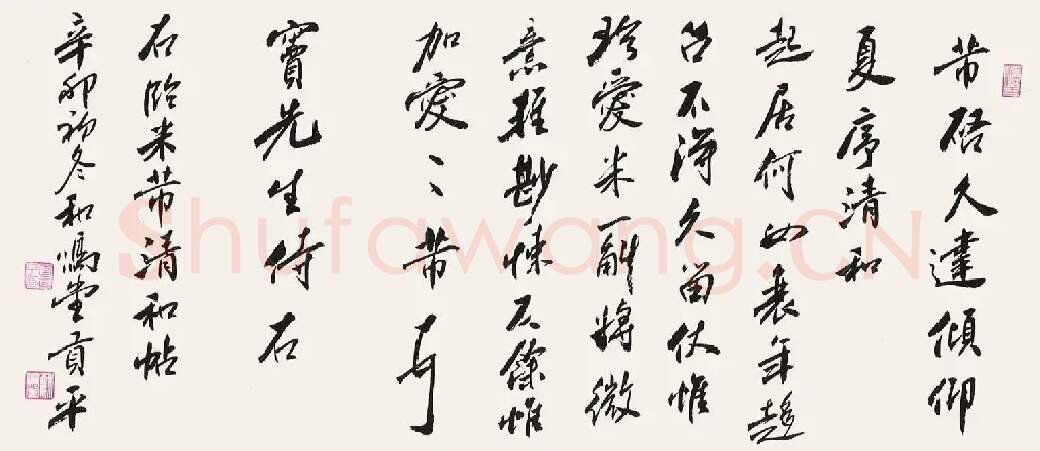 芾啓久違傾仰
夏序清和
起居何如衰年趨
召不得久留伏惟
珍愛米一斛將微
意輕尠悚仄餘惟
加愛〻芾頓首
竇先生侍右
右臨米芾清和帖
辛卯初冬和鳴堂貢平
Shufawang.CN